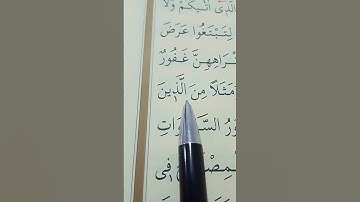 الَّذ۪ٓي اٰتٰيكُمْ وَلَا
لِتَبْتَغُوا عَرَضَ
رَاهِهِنَّ غَفُورٌ
مَثَلًا مِنَ الَّذ۪ينَ
ورُ السَّ وَاتِ
مِصْ ف۪ي